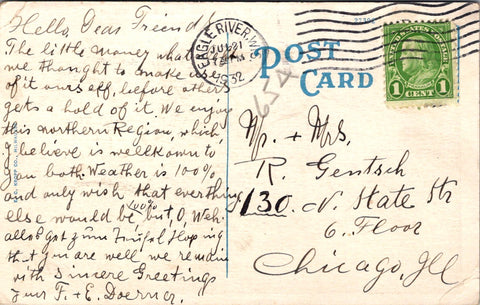 Hello, Dear Friends
The little money what
we thought to make us
of it ourself, before others
gets a hold of it. We enjoy
this northern Region, which
I believe is well known to
you both. Weather is 100%
and only wish that everything
else would be 100% but, O, Weh
alles get zum Hopeing
that you are well we remain
with Sincere Greetings
your F. + E. Doerner.
EAGLE RIVER, WIS.
JUL 21
1932
POST
CARD
1 CENT 1
Mr. + Mrs.
R. Gentsch
130. N. State Str
6. Floor
Chicago, Ill